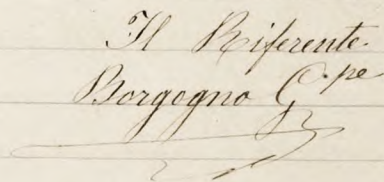 Il Riferente
Borgogno G.pe